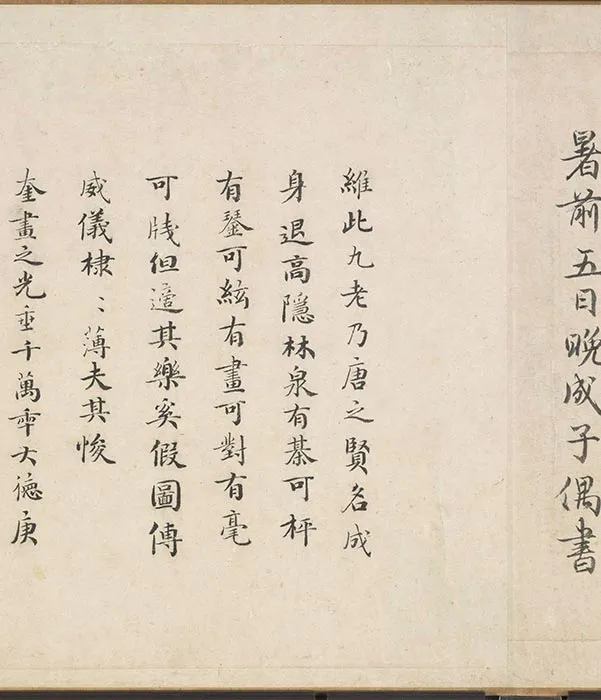 暑前五日晚成子偶書
維此九老乃唐之賢名成
身退高隱林泉有棊可枰
有琴可絃有畫可對有毫
可牋但適其樂奚假圖傳
威儀棣〻薄夫其悛
奎畫之光垂千萬年大德庚